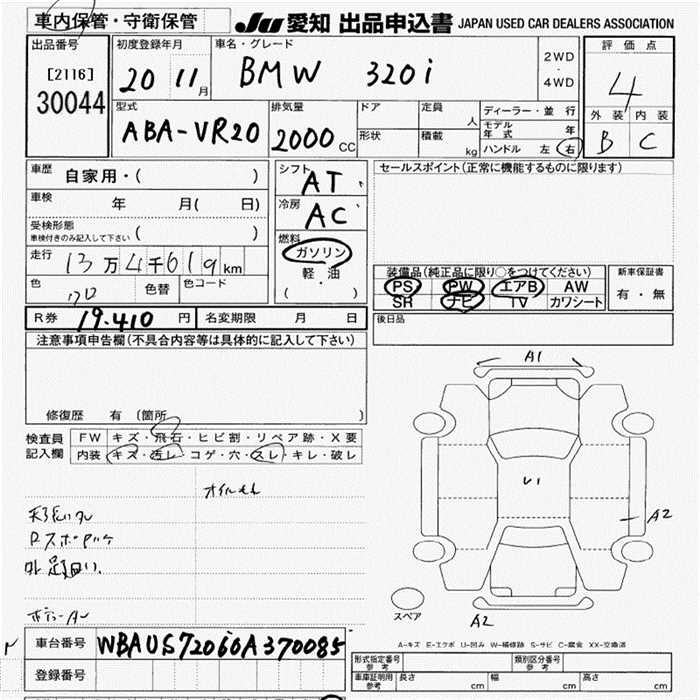 車内保管・守衛保管
JU 愛知 出品申込書 JAPAN USED CAR DEALERS ASSOCIATION
出品番号 初度登録年月 車名・グレード 評価点
[2116] 20 11月 BMW 320i 2WD・4WD 4
30044
型式 排気量 ドア 定員 人 ディーラー・並行 外装 内装
ABA-VR20 2000cc 形状 積載 kg モデル年式 年 B C
ハンドル 左 右
車歴 自家用・( ) シフト AT セールスポイント(正常に機能するものに限ります)
車検 年 月( 日) 冷房 AC
受検形態 ( )
車検付きのみ記入して下さい
燃料
走行 13万4千619km ガソリン 装備品(純正品に限り○をつけてください) 新車保証書
色 色替 色コード 軽・油 PS PW エアB AW 有・無
( ) SR ナビ TV カワシート
R券 19.410円 名変期限 月 日 後日品
注意事項申告欄(不具合内容等は具体的に記入して下さい)
A1
修復歴 有 (箇所 )
検査員 FW キズ・飛石・ヒビ割・リペア跡・X要
記入欄 内装 キズ・汚レ・コゲ・穴・スレ・キレ・破レ
U1
A2
スペア
A2
車台番号 WBAUS72060A370085
A-キズ E-エクボ U-凹み W-補修跡 S-サビ C-腐食 XX-交換済
登録番号
形式指定番号 参考 類別区分番号 参考
車庫証明用 参考 長さ cm 幅 cm 高さ cm